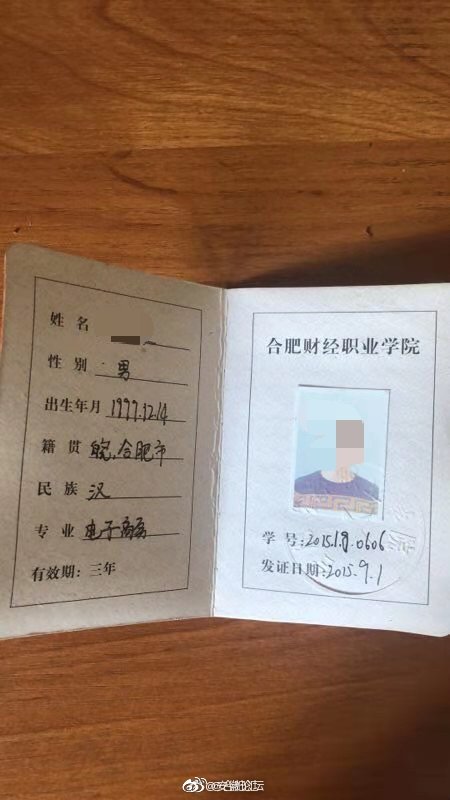 姓 名
性 别 男
出生年月 1997.12.14
籍 贯 皖,合肥市
民 族 汉
专 业 电子商务
有效期:三年
合肥财经职业学院
学 号:2015.1.9.0606
发证日期:2015.9.1